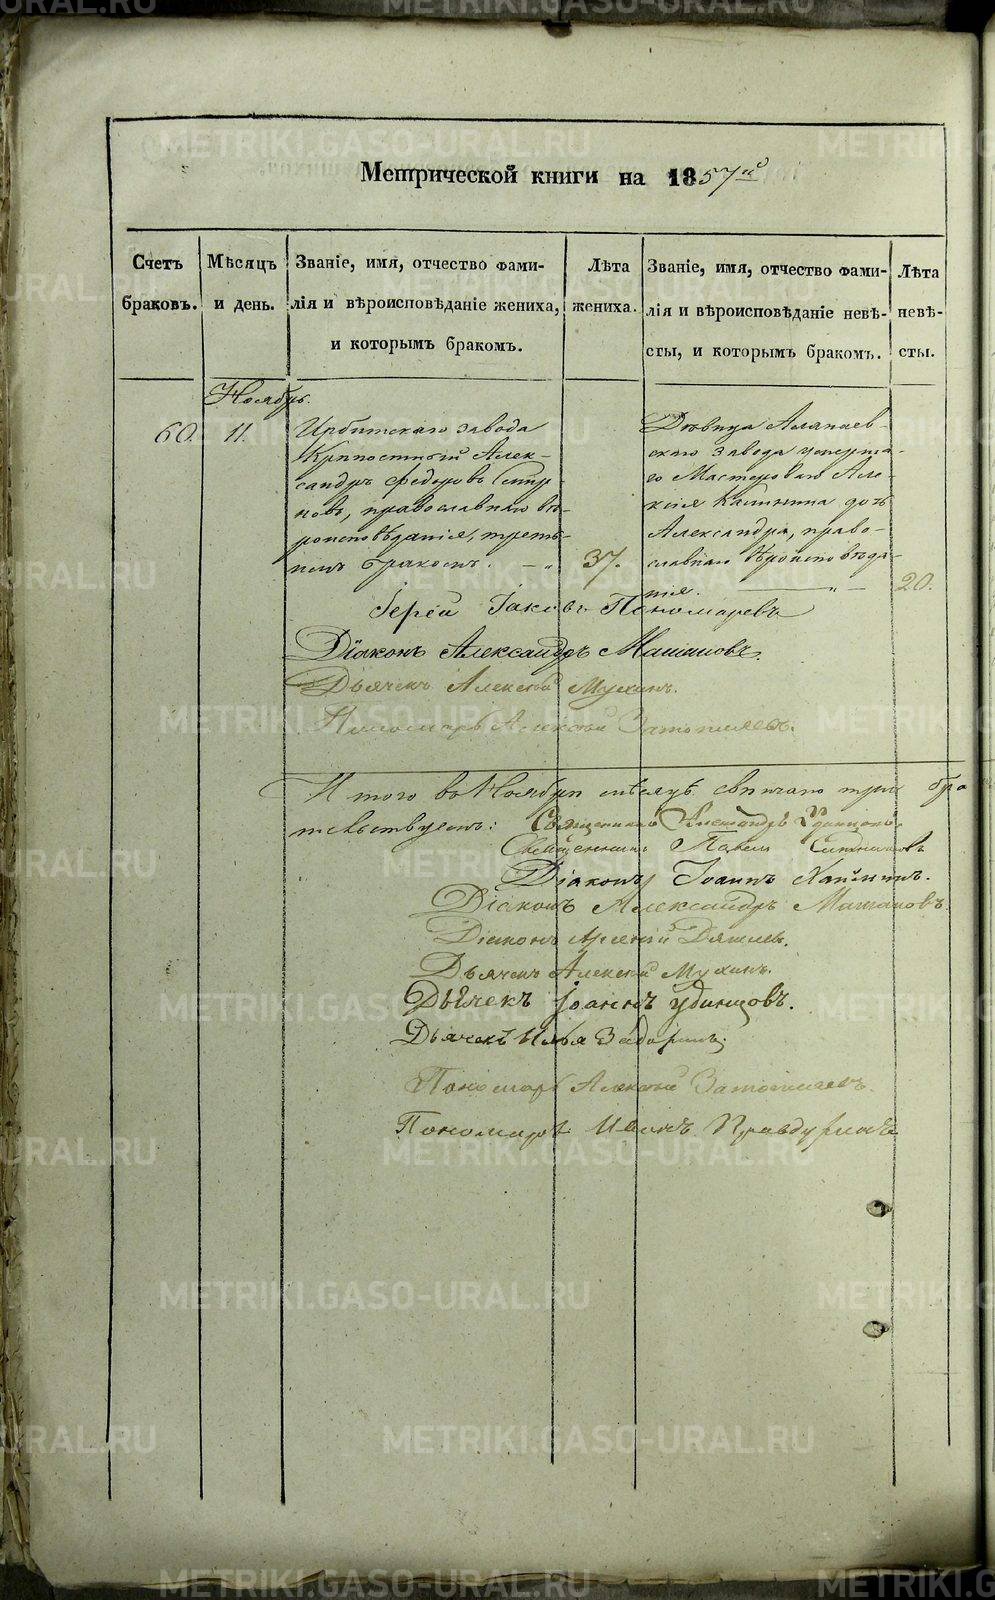 Метрической книги на 1857й
Счетъ браковъ.
Мѣсяцъ и день.
Званіе, имя, отчество фами-
лія и вѣроисповѣданіе жениха,
и которымъ бракомъ.
Лѣта жениха.
Званіе, имя, отчество фами-
лія и вѣроисповѣданіе невѣ-
сты, и которымъ бракомъ.
Лѣта невѣ-
сты.
Ноябрь.
60.
11.
Ирбитскаго завода
Крѣпостный Алек-
сандръ Федоровъ
православнаго вѣ-
роисповѣданія, треть-
имъ бракомъ.
37.
Дѣвица Алапаев-
скаго завода умерша-
го Мастероваго Але-
ксія Калинина дочь
Александра, право-
славнаго вѣроисповѣда-
нія.
20.
Іерей Іаковъ Пономаревъ
Діаконъ Александръ Машановъ.
Дьячекъ Алексѣй Мухинъ.
Пономарь Алексѣй
Итого въ Ноябрѣ мѣсяцѣ свѣнчано три бра
Священникъ Александръ Удинцовъ.
Священникъ Павелъ
Діаконъ Іоаннъ
Діаконъ Александръ Машановъ.
Діаконъ Арсеній
Дьячекъ Алексѣй Мухинъ.
Дьячекъ Іоаннъ Удинцовъ.
Дьячекъ Илья Задоринъ.
Пономарь Алексѣй
Пономарь Иванъ Правдуринъ
METRIKI.GASO-URAL.RU